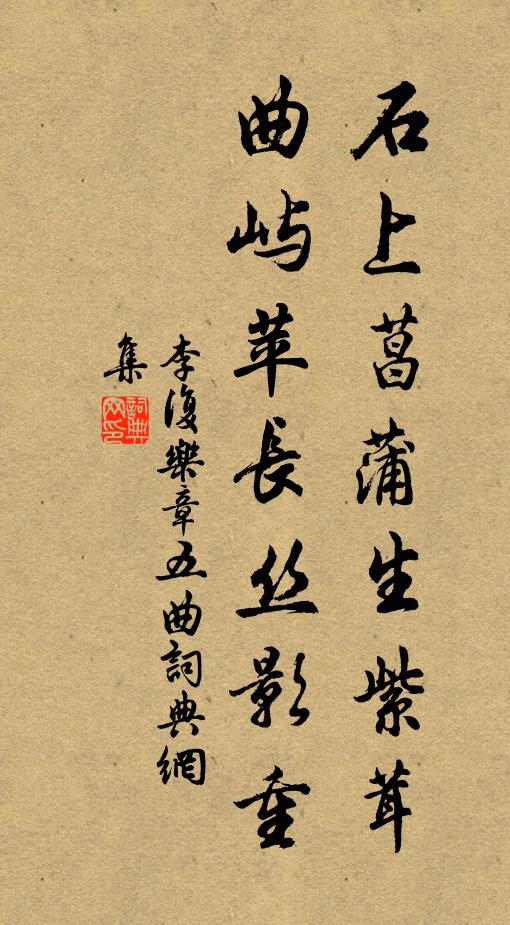 石上菖蒲生紫茸
曲屿苹長丝影重
李復樂章五曲詞典網
集
詞典
网印